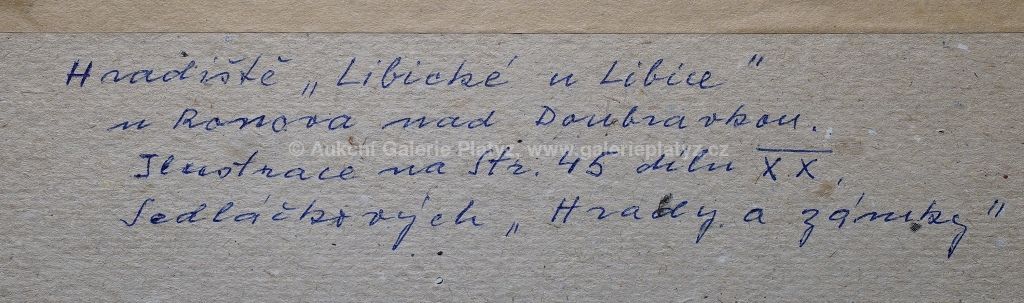 Hradiště „Libické u Libice"
u Ronova nad Doubravkou.
© Aukční Galerie Platýz, www.galerieplatyz.cz
Ilustrace na str. 45 dílu XX,
Sedláčkových „Hrady a zámky"